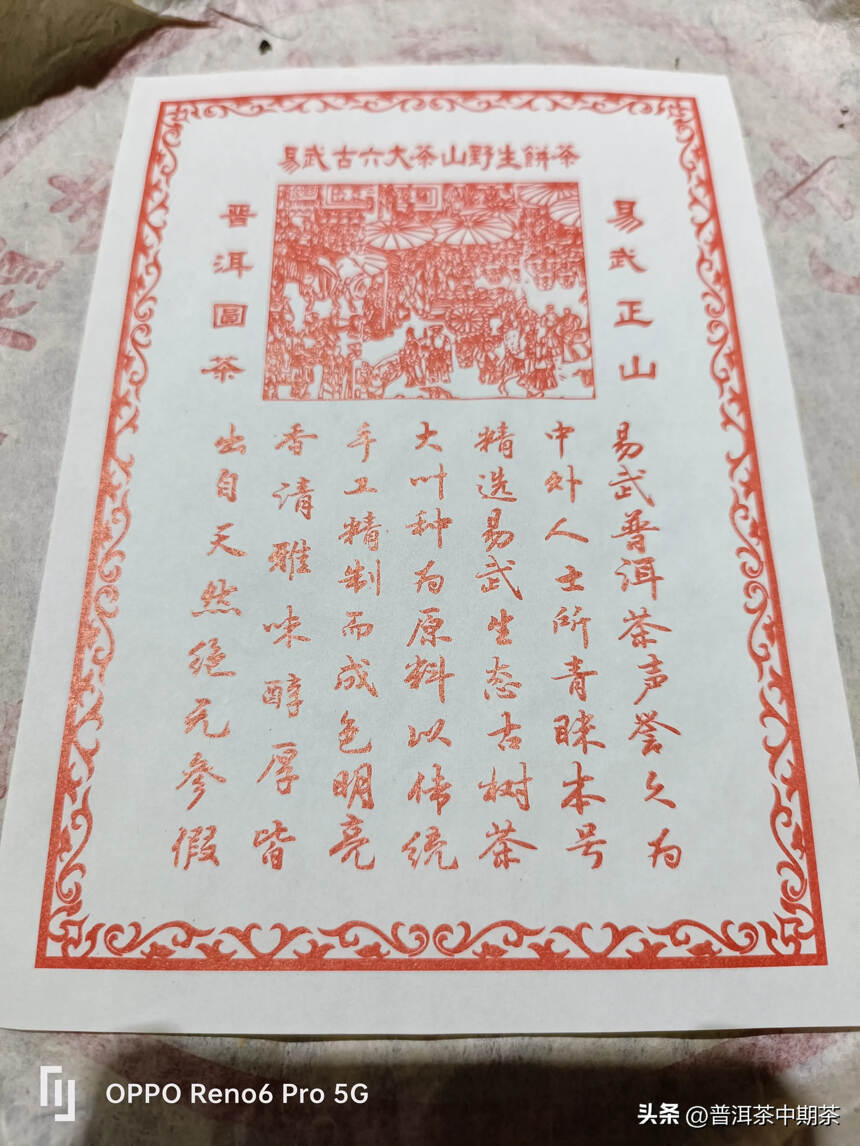 易武古六大茶山野生餅茶
易武正山
普洱圓茶
易武普洱茶声誉久为
中外人士所青睐本号
精选易武生态古树茶
大叶种为原料以传统
手工精制而成色明亮
香清雅味醇厚皆
出自天然绝无参假
OPPO Reno6 Pro 5G
头条 @普洱茶中期茶